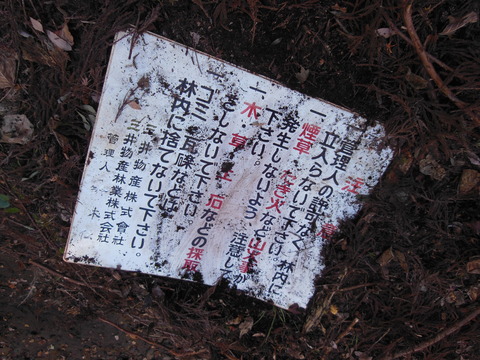 注意
一 管理人の許可なく
立入らないで下さい。林内に
一 煙草、たき火など山火事が
発生しないよう、注意して
下さい。
一 木、草、土、石などの採取
をしないで下さい
ゴミ、瓦礫などは
林内に捨てないで下さい。
三井物産株式会社
三井物産林業株式会社
管理人